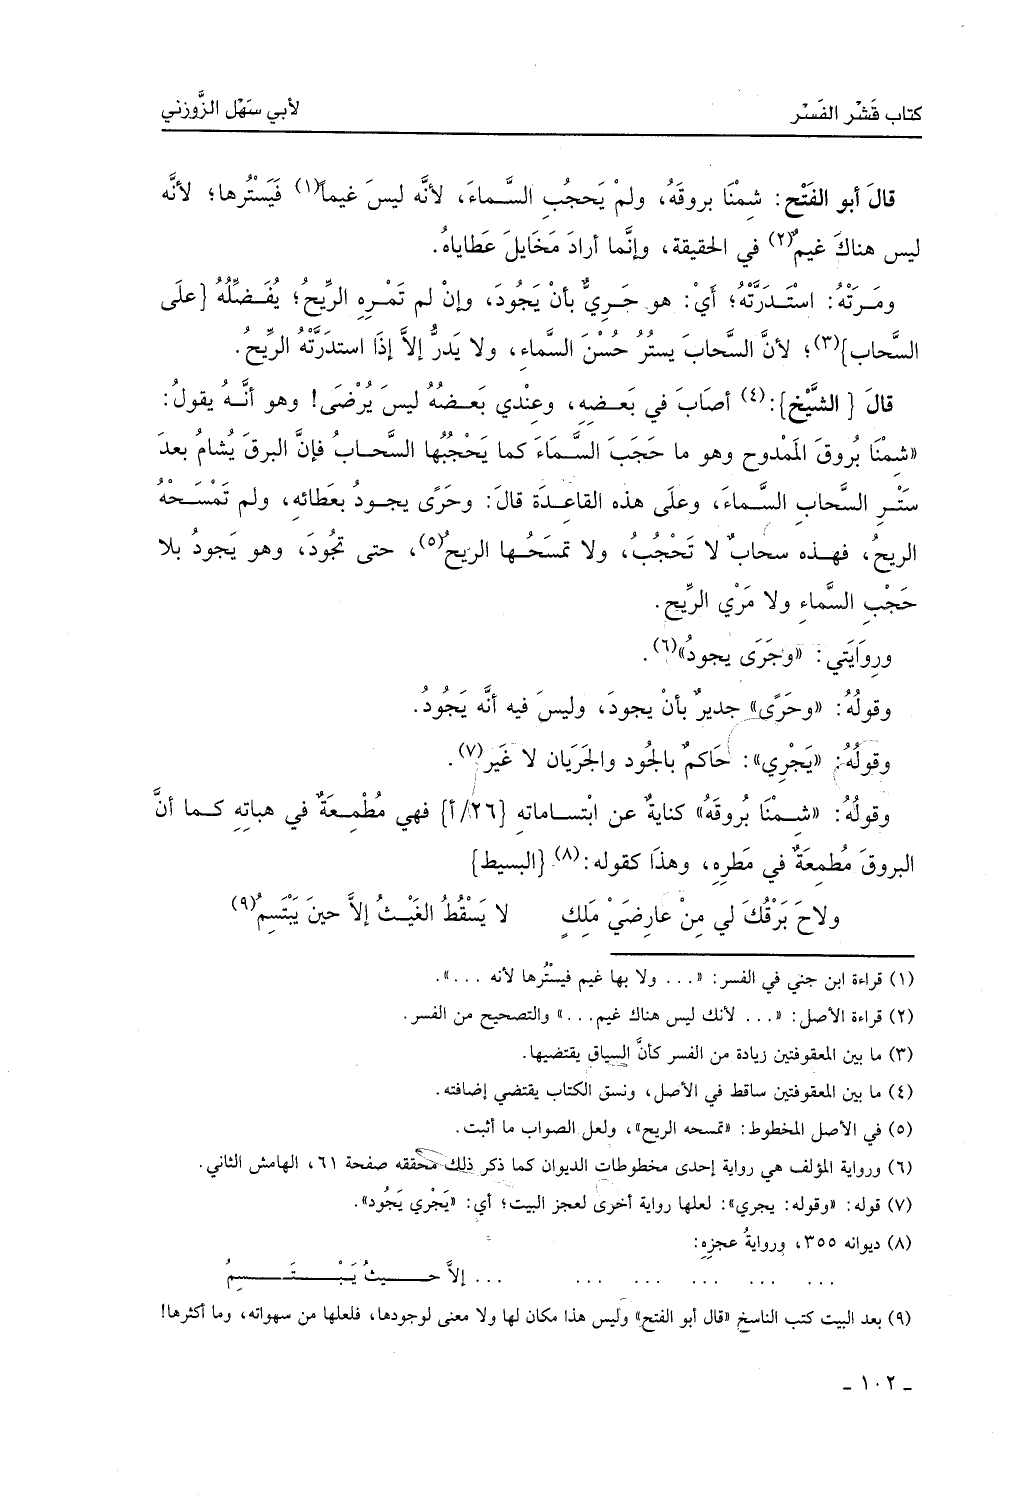 كتاب قَشْر الفَسْر
لأبي سهْل الزَّوزني
قالَ أبو الفَتْح: شِمْنَا بروقَهُ، ولمْ يَحجُبِ السَّماءَ، لأنَّه ليسَ غيماً(١) فَيَسْتُرها؛ لأنَّه
ليس هناكَ غيمٌ(٢) في الحقيقة، وإنَّما أرادَ مَخَايلَ عَطاياهُ.
ومَرَتْهُ: اسْتَدَرَّتْهُ؛ أيْ: هو حَرِيٌّ بأنْ يَجُودَ، وإنْ لم تَمْرِه الرِّيحُ؛ يُفَضِّلُهُ [على
السَّحاب](٣)؛ لأنَّ السَّحابَ يستُرُ حُسْنَ السَّماء، ولا يَدرُّ إلاَّ إذَا استدَرَّتْهُ الرِّيحُ.
قالَ [الشَّيْخ]:(٤) أصَابَ في بَعضِهِ، وعِنْدي بَعضُهُ ليسَ يُرْضَى! وهو أنَّهُ يقولُ:
«شِمْنَا بُروقَ المَمْدوحِ وهو ما حَجَبَ السَّمَاءَ كما يَحْجُبُها السحَابُ فإنَّ البرقَ يُشامُ بعدَ
سَتْرِ السَّحابِ السَّماءَ، وعلَى هذه القاعدَة قالَ: وحَرًى يجودُ بعَطائه، ولم تَمْسَحْهُ
الريحُ، فهذه سحابٌ لا تَحْجُبُ، ولا تمسَحُها الريحُ(٥)، حتى تجُودَ، وهو يَجودُ بلا
حَجْبِ السَّماءِ ولا مَرْي الرِّيح.
وروَايَتي: «وجَرَى يجودُ»(٦).
وقولُهُ: «وحَرًى» جديرٌ بأنْ يجودَ، وليسَ فيه أنَّه يَجُودُ.
وقولُهُ: «يَجْرِي»: حَاكمٌ بالجُود والجَرَيان لا غَير(٧).
وقولُهُ: «شِمْنَا بُروقَهُ» كنايةٌ عن ابْتساماته [٢٦/أ] فهي مُطْمِعَةٌ في هباتِهِ كما أنَّ
البروقَ مُطمِعَةٌ في مَطرِه، وهذَا كقوله:(٨) [البسيط]
ولاحَ بَرْقُكَ لي مِنْ عارضَيْ مَلكٍ لا يَسْقُطُ الغَيْثُ إلاَّ حينَ يَبْتَسِمُ(٩)
(١) قراءة ابن جني في الفسر: «... ولا بها غيم فيسْتُرها لأنه ...».
(٢) قراءة الأصل: «... لأنك ليس هناك غيم...» والتصحيح من الفسر.
(٣) ما بين المعقوفتين زيادة من الفسر كأنَّ السياق يقتضيها.
(٤) ما بين المعقوفتين ساقط في الأصل، ونسق الكتاب يقتضي إضافته.
(٥) في الأصل المخطوط: «تمسحه الريح»، ولعل الصواب ما أثبت.
(٦) ورواية المؤلف هي رواية إحدى مخطوطات الديوان كما ذكر ذلك محققه صفحة ٦١، الهامش الثاني.
(٧) قوله: «وقوله: يجري»: لعلها رواية أخرى لعجز البيت؛ أي: «يَجْري يَجُود».
(٨) ديوانه ٣٥٥، وروايةُ عجزِهِ:
... ... ... ... ... ... إلاَّ حيثُ يَبْتَسِمُ
(٩) بعد البيت كتب الناسخ «قال أبو الفتح» وليس هذا مكان لها ولا معنى لوجودها، فلعلها من سهواته، وما أكثرها!
ـ ١٠٢ ـ